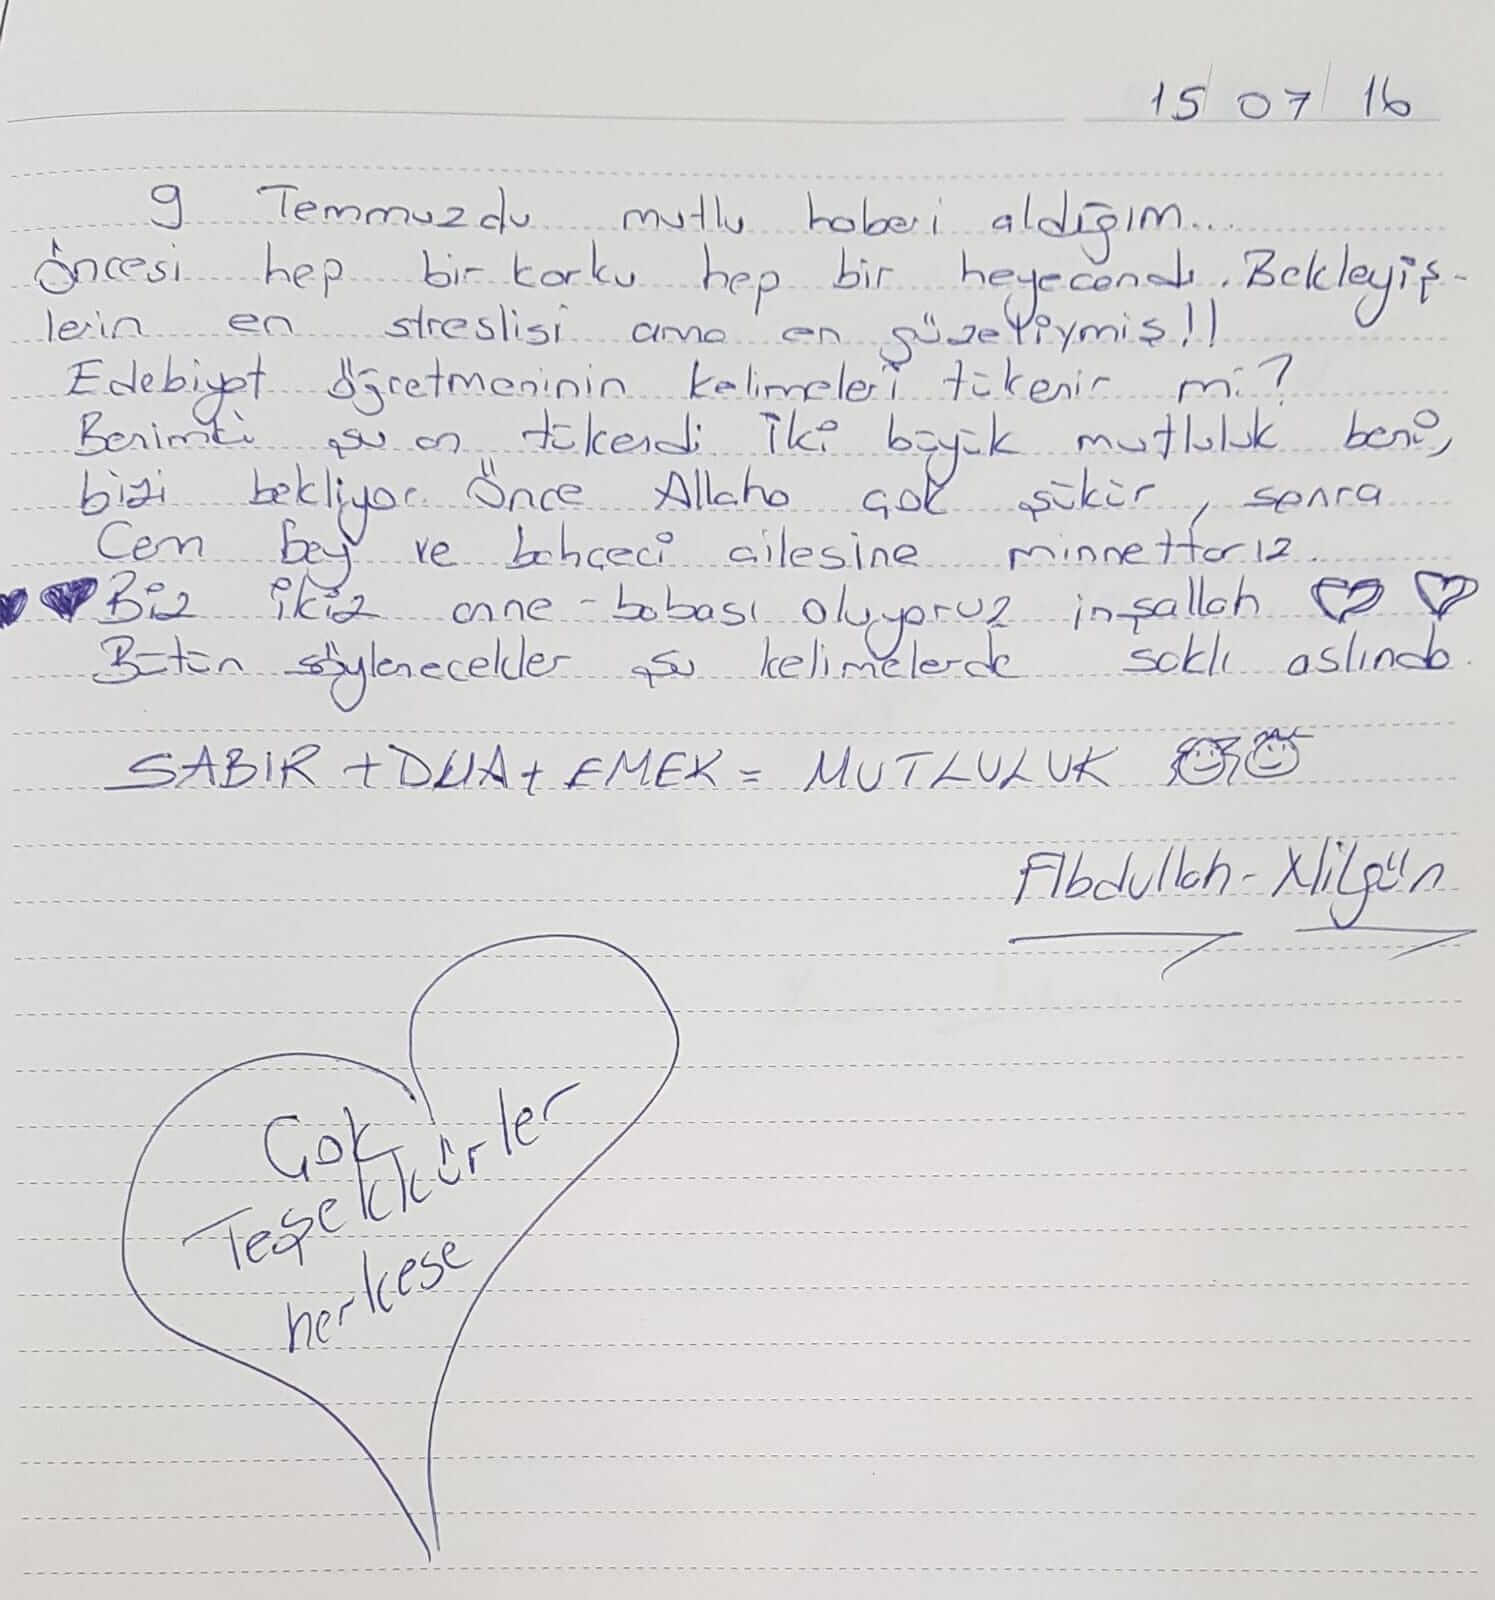 15/07/16
9 Temmuzdu mutlu haberi aldığım...
Öncesi hep bir korku hep bir heyecandı. Bekleyiş-
lerin en streslisi ama en güzeliymiş!!
Edebiyat öğretmeninin kelimeleri tükenir mi?
Benimki şu an tükendi iki büyük mutluluk beni,
bizi bekliyor. Önce Allaha çok şükür, sonra
Cem bey ve bahçeci ailesine minnettarız.
Biz ikiz anne-babası oluyoruz inşallah
Bütün söylenecekler şu kelimelerde saklı aslında.
SABIR + DUA + EMEK = MUTLULUK
Abdullah - Nilgün
Çok
Teşekkürler
herkese